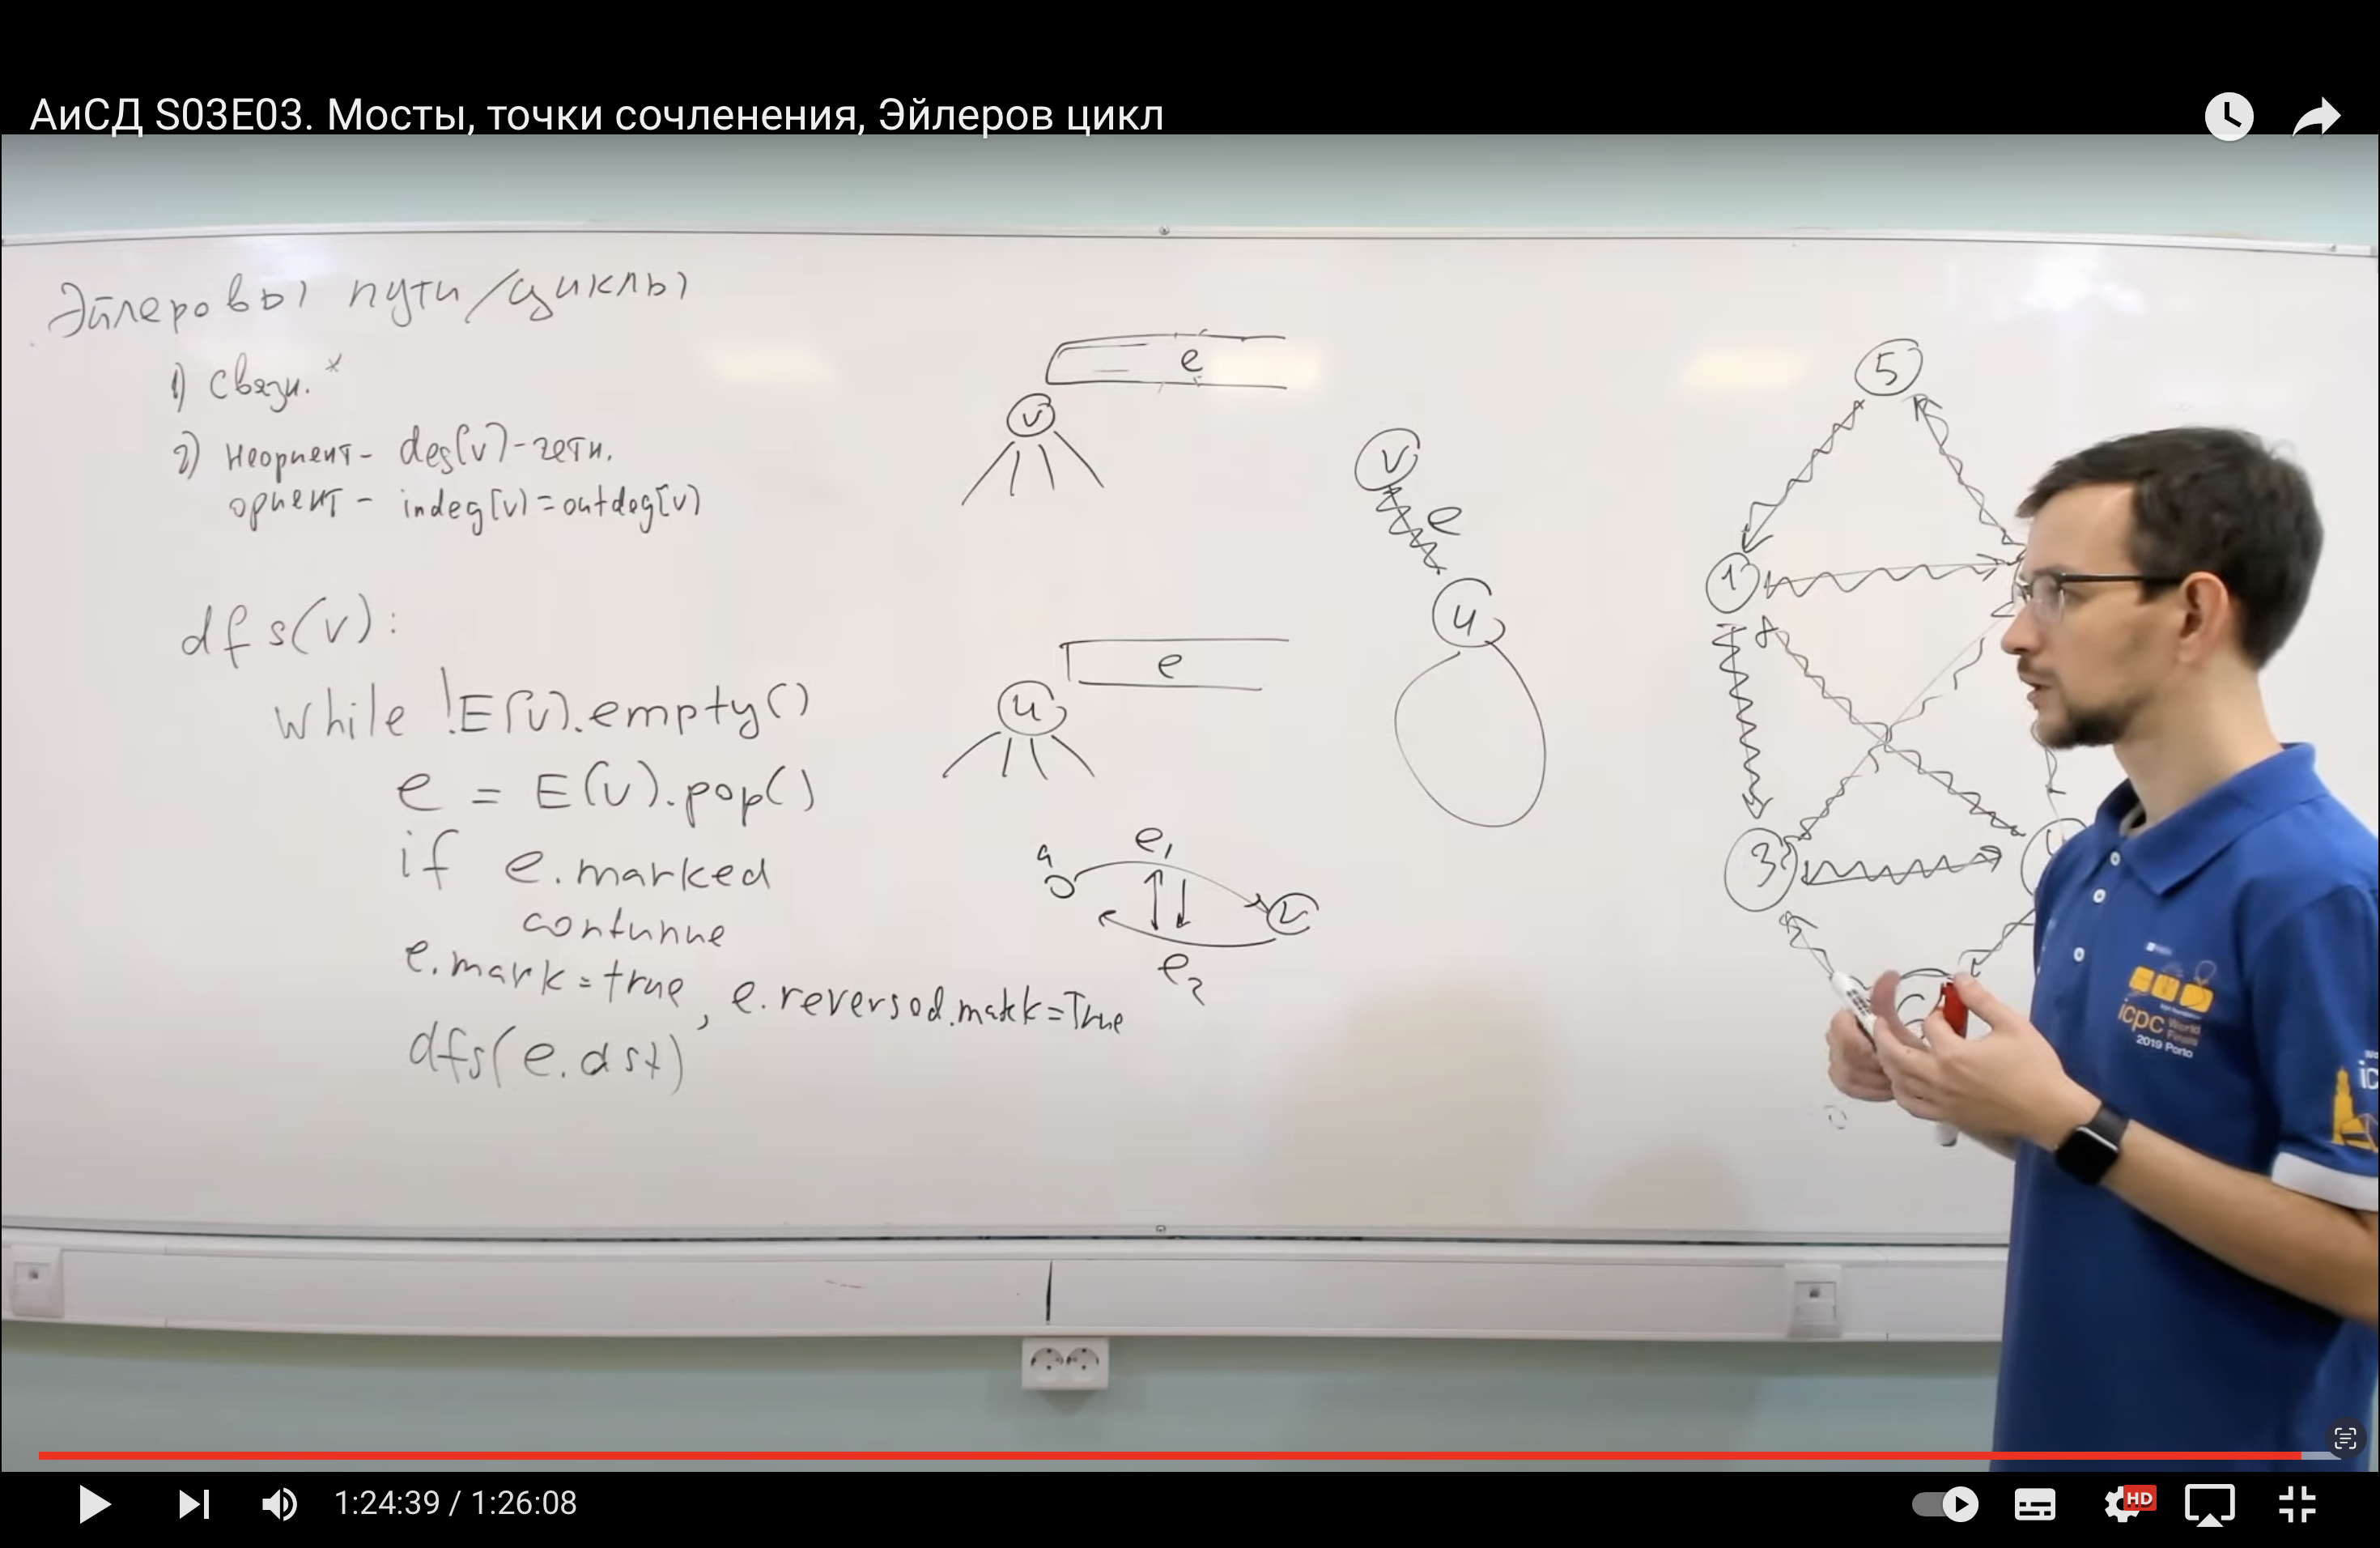 АиСД S03E03. Мосты, точки сочленения, Эйлеров цикл
Эйлеровы пути/циклы
1) Связн.*
2) неориент- deg(v)-четн.
ориент- indeg(v)=outdeg(v)
dfs(v):
while !E(v).empty()
e = E(v).pop()
if e.marked
continue
e.mark=true, e.reversed.mark=True
dfs(e.dst)
e
v
e
u
e1
e2
v
e
u
5
1
3
4
icpc World Finals
2019 Porto
ic
1:24:39 / 1:26:08
HD